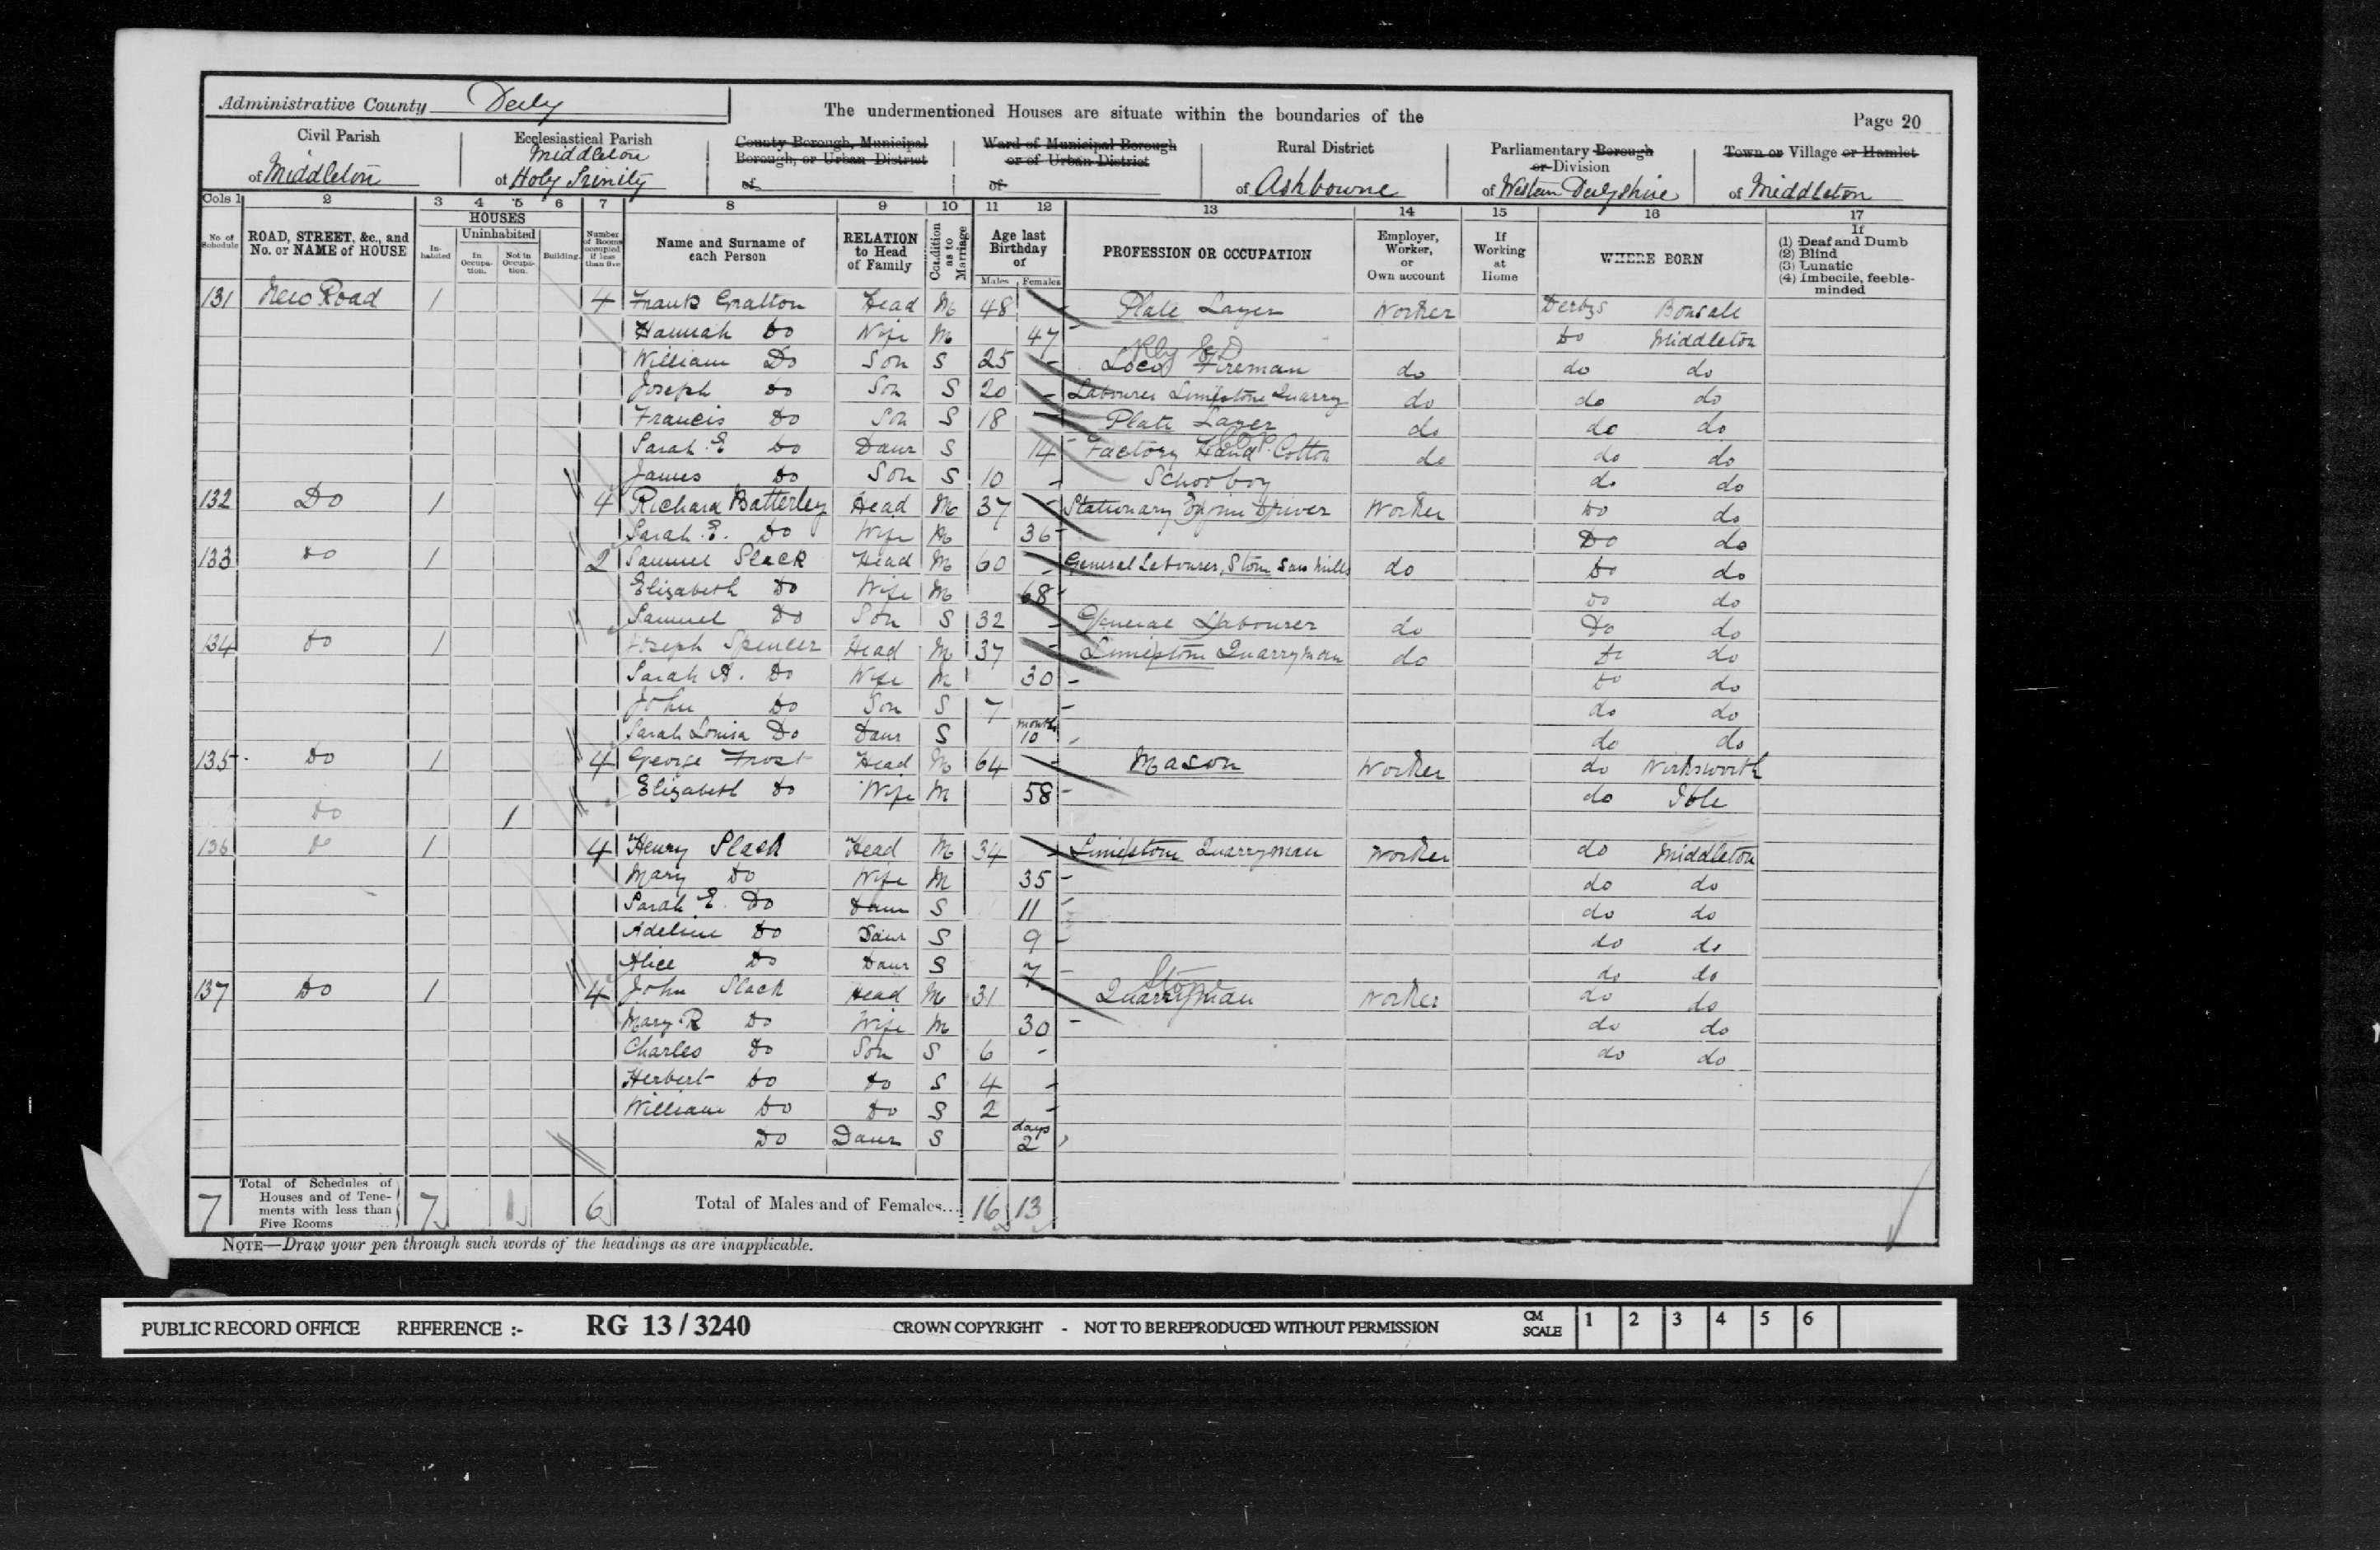 Administrative County Derby
The undermentioned Houses are situate within the boundaries of the
Page 20
Civil Parish of Middleton
Ecclesiastical Parish of Middleton Holy Trinity
County Borough, Municipal Borough, or Urban District of
Ward of Municipal Borough or of Urban District of
Rural District of Ashbourne
Parliamentary Borough or Division of Western Derbyshire
Town or Village or Hamlet of Middleton
Cols 1 2 3 4 5 6 7 8 9 10 11 12 13 14 15 16 17
No. of Schedule
ROAD, STREET, &c., and No. or NAME of HOUSE
HOUSES
Inhabited
Uninhabited
In Occupation.
Not in Occupation.
Building.
Number of Rooms occupied if less than five
Name and Surname of each Person
RELATION to Head of Family
Condition as to Marriage
Age last Birthday of
Males Females
PROFESSION OR OCCUPATION
Employer, Worker, or Own account
If Working at Home
WHERE BORN
If
(1) Deaf and Dumb
(2) Blind
(3) Lunatic
(4) Imbecile, feeble-minded
131 New Road 1 4 Frank Gratton Head M 48 - Plate Layer Worker Derbys Bonsall
Hannah Do Wife M 47 - Do Middleton
William Do Son S 25 - Loco Fireman do do do
Joseph Do Son S 20 - Labourer Limestone Quarry do do do
Francis Do Son S 18 - Plate Layer do do do
Sarah E Do Daur S 14 - Factory Hand Cotton do do do
James Do Son S 10 - Schoolboy do do
132 Do 1 4 Richard Batterley Head M 37 - Stationary Engine Driver Worker Do do
Sarah E. Do Wife M 36 - Do do
133 Do 1 2 Samuel Slack Head M 60 - General Labourer, Stone Saw Mills do Do do
Elizabeth Do Wife M 68 - Do do
Samuel Do Son S 32 - General Labourer do Do do
134 Do 1 Joseph Spencer Head M 37 - Limestone Quarryman do Do do
Sarah A. Do Wife M 30 - Do do
John Do Son S 7 - do do
Sarah Louisa Do Daur S months 10 - do do
135 Do 1 4 George Frost Head M 64 - Mason Worker do Wirksworth
Elizabeth Do Wife M 58 - do Ible
Do 1
136 Do 1 4 Henry Slack Head M 34 - Limestone Quarryman Worker do Middleton
Mary Do Wife M 35 - do do
Sarah E. Do Daur S 11 - do do
Adeline Do Daur S 9 - do do
Alice Do Daur S 7 - do do
137 Do 1 4 John Slack Head M 31 - Stone Quarryman Worker do do
Mary R Do Wife M 30 - do do
Charles Do Son S 6 - do do
Herbert Do Do S 4 -
William Do Do S 2 -
Do Daur S days 2
7 Total of Schedules of Houses and of Tenements with less than Five Rooms 7 1 6 Total of Males and of Females... 16 13
NOTE—Draw your pen through such words of the headings as are inapplicable.
PUBLIC RECORD OFFICE REFERENCE :- RG 13 / 3240 CROWN COPYRIGHT - NOT TO BE REPRODUCED WITHOUT PERMISSION CM SCALE 1 2 3 4 5 6